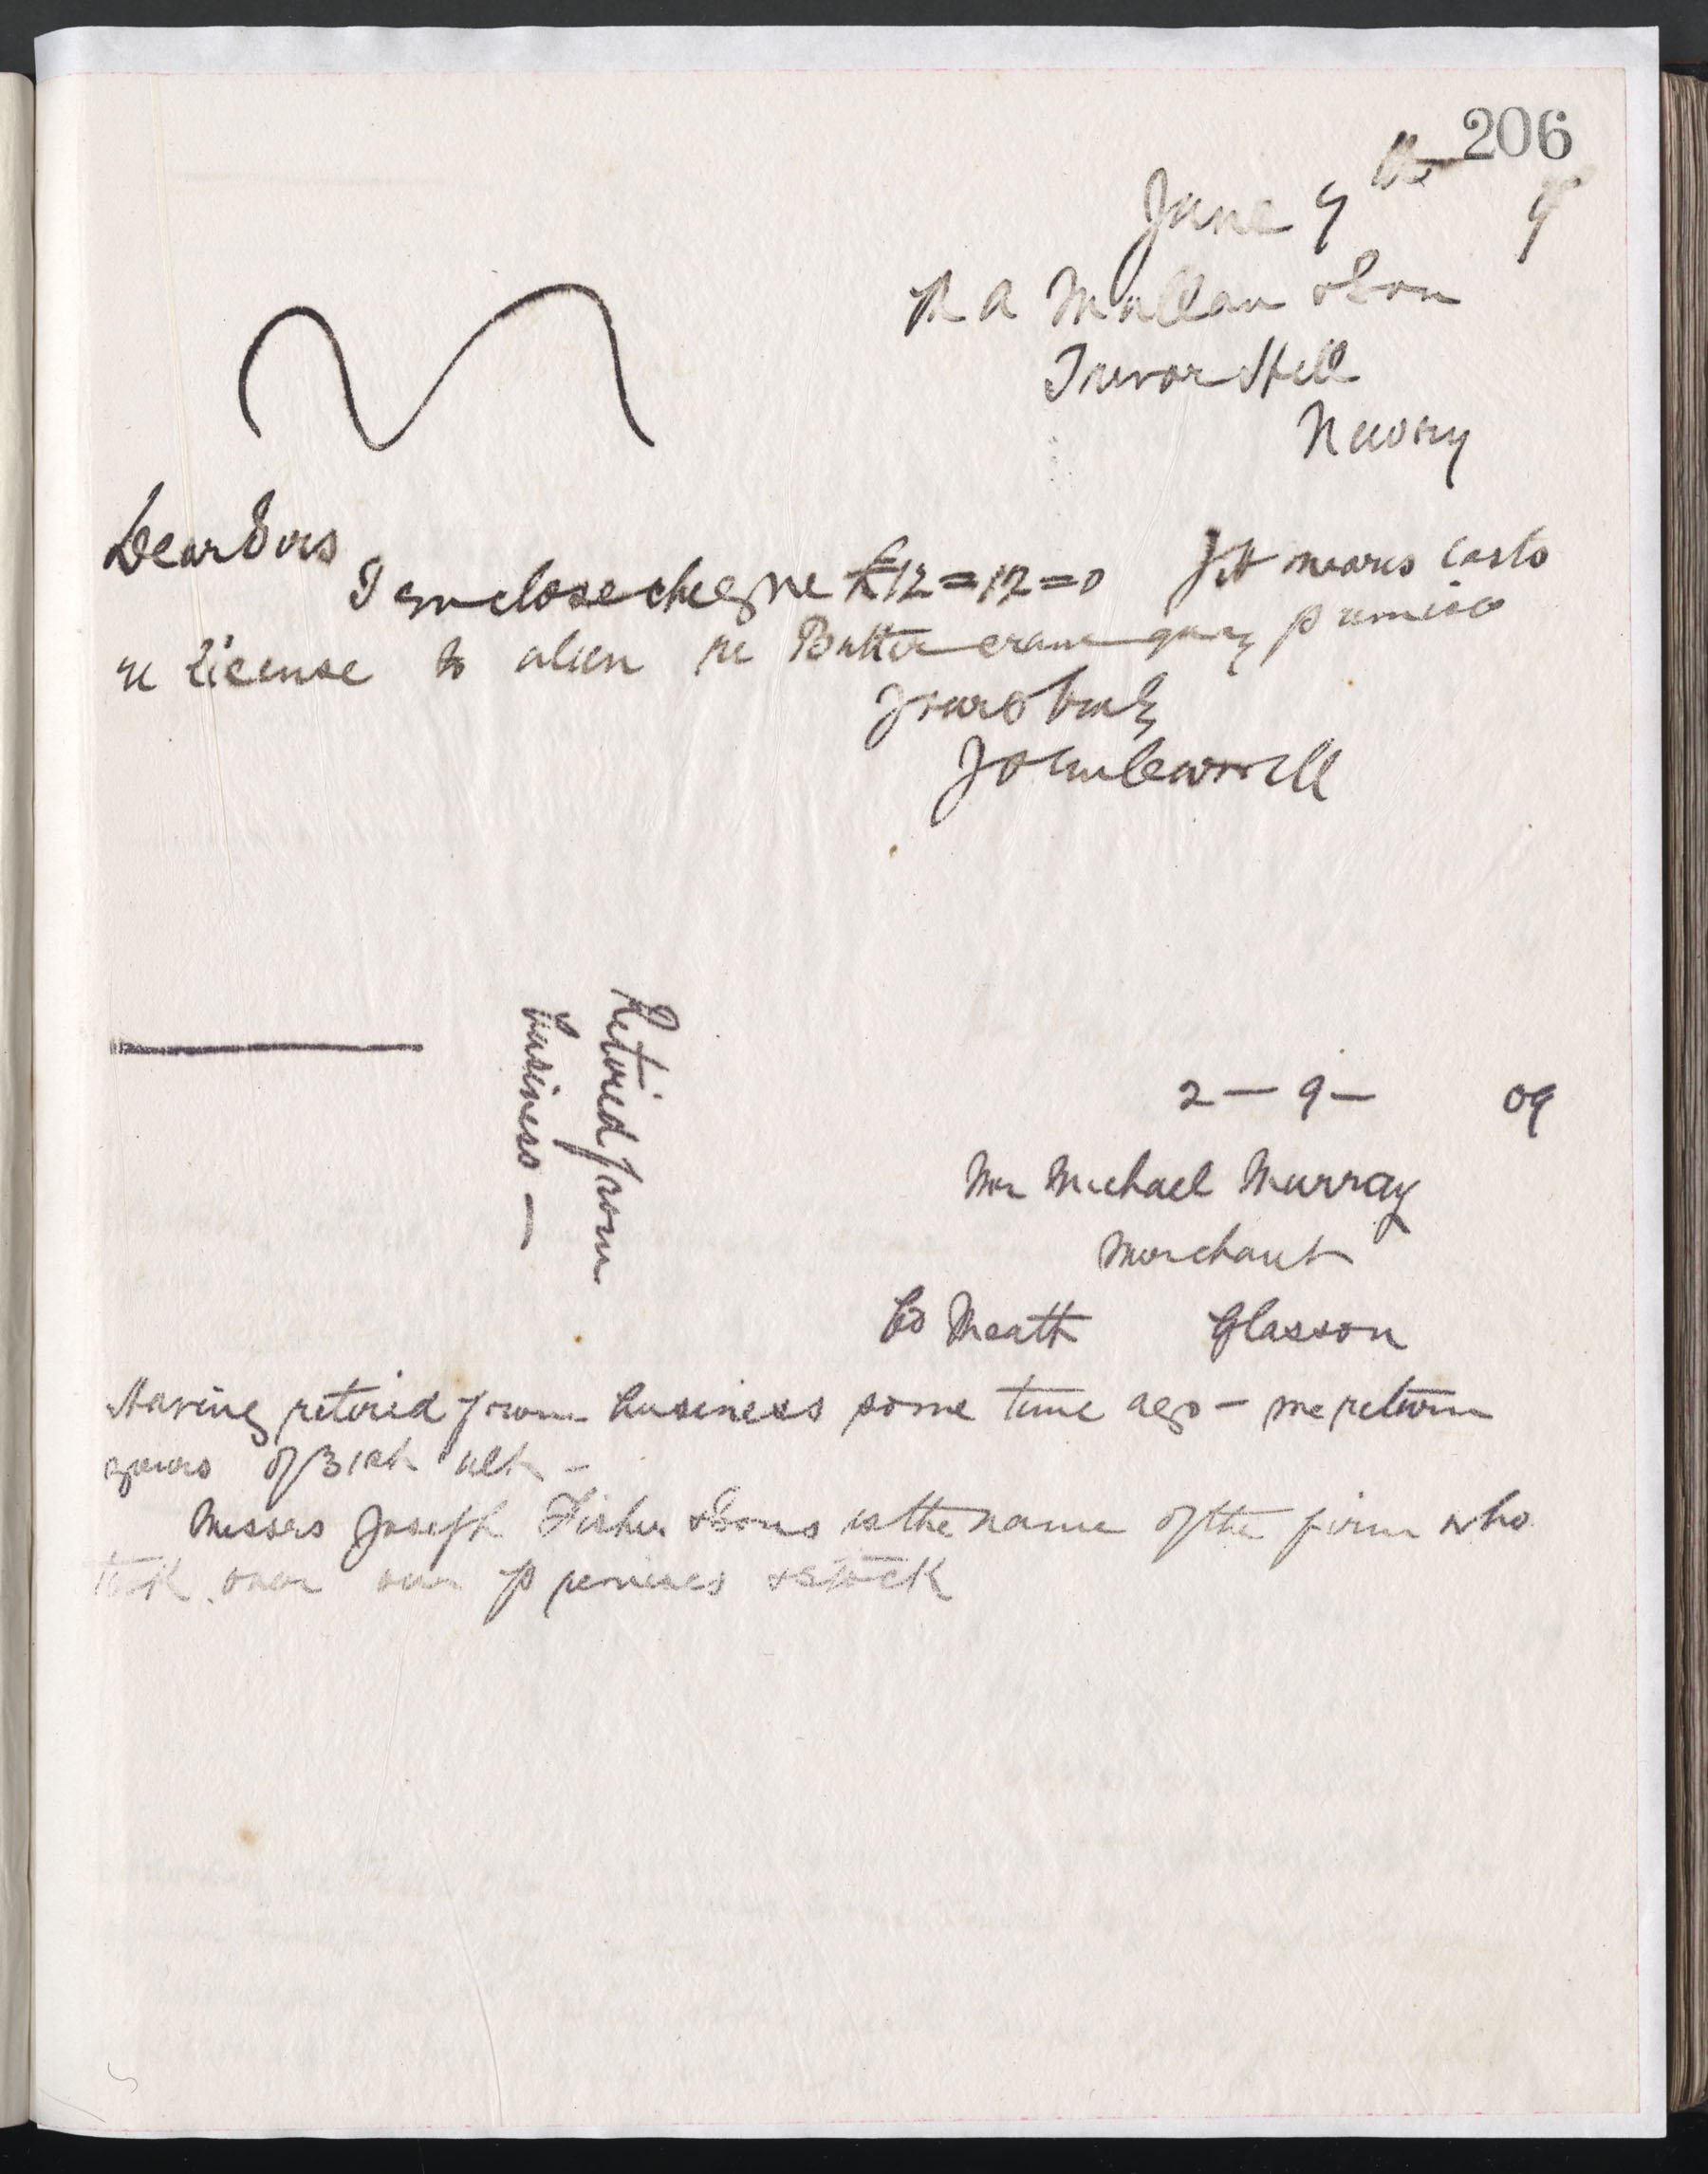 206
June 9th 9
R A Mullan & Son
Trevor Hill
Newry
Dear Sirs
I enclose cheque £12=12=0 costs
re license to alien re Butter crane quay premises
Yours truly
John
Retired from
business —
2 — 9 — 09
Mr Michael Murray
Merchant
Co Meath Glasson
Having retired from business some time ago — we return
yours of 31st ult —
Messrs Joseph Fisher & Sons is the name of the firm who
took over our premises & stock